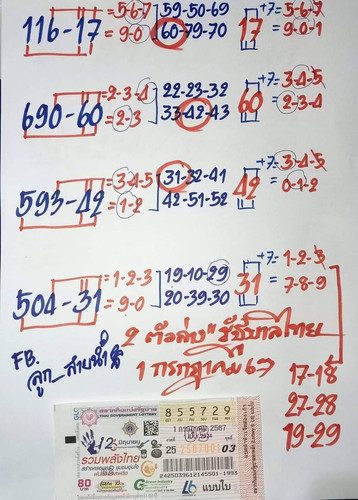 116-17 =5-6-7 59-50-69 17 +7=5-6-7
=9-0 60-79-70 =9-0-1
690-60 =2-3-4 22-23-32 60 +7=3-4-5
=2-3 33-42-43 =2-3-4
593-42 =3-4-5 31-32-41 42 +7=3-4-5
=1-2 42-51-52 =0-1-2
504-31 =1-2-3 19-10-29 31 +7=1-2-3
=9-0 20-39-30 =7-8-9
2 ตัวล่าง" รัฐบาลไทย
FB.
ลูก_สายน้ำ
1 กรกฎาคม 67
17-18
27-28
19-29
สลากกินแบ่งรัฐบาล
THAI GOVERNMENT LOTTERY
855729
1 กรกฎาคม 2567
12 มิถุนายน
รวมพลังไทย
25 03
80
แบบใบ